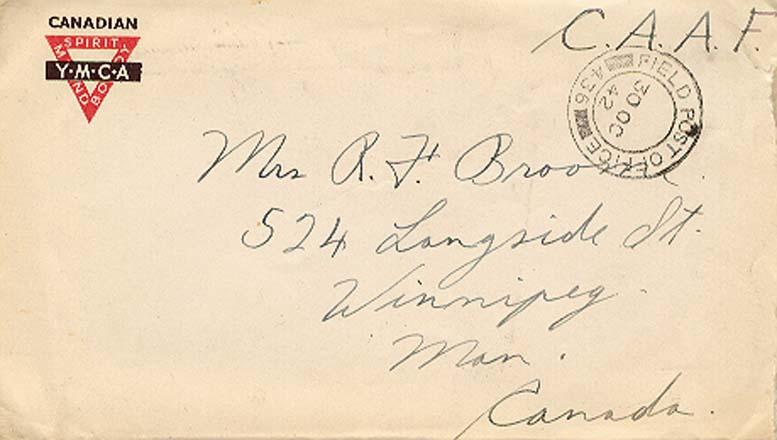 CANADIAN
SPIRIT
MIND BODY
Y·M·C·A
C. A. A. F.
FIELD POST OFFICE
A36
30 OC
42
Mrs R. F.
524 Langside St.
Winnipeg.
Man.
Canada.